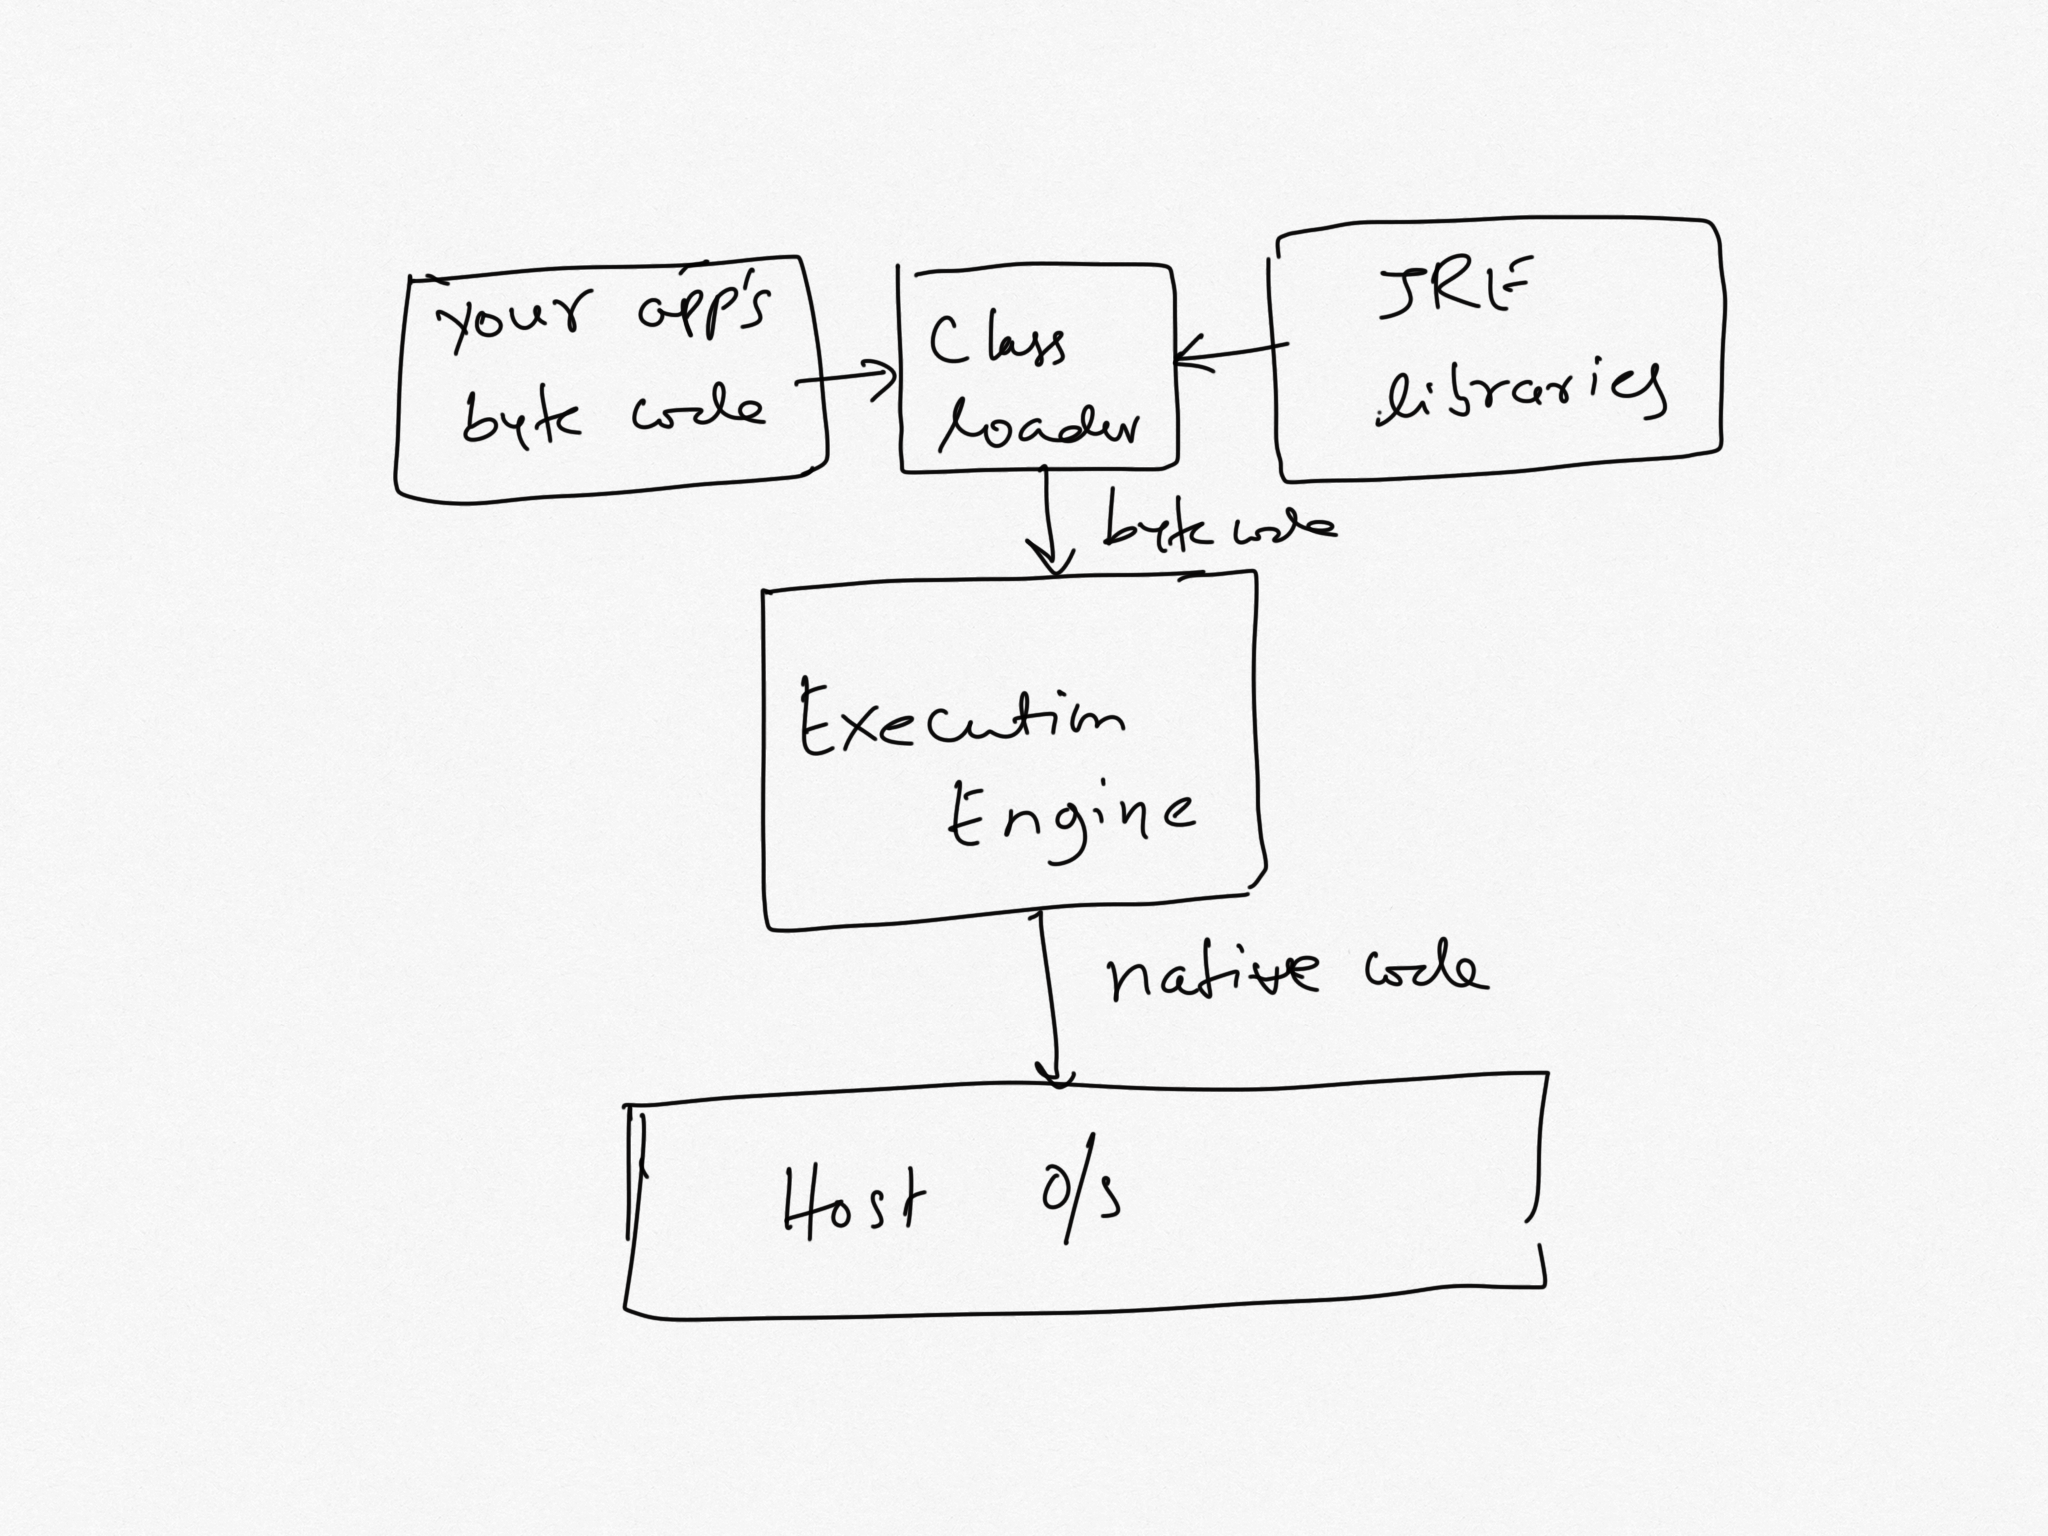 your app's
byte code
Class
loader
JRE
libraries
byte code
Execution
Engine
native code
Host O/S